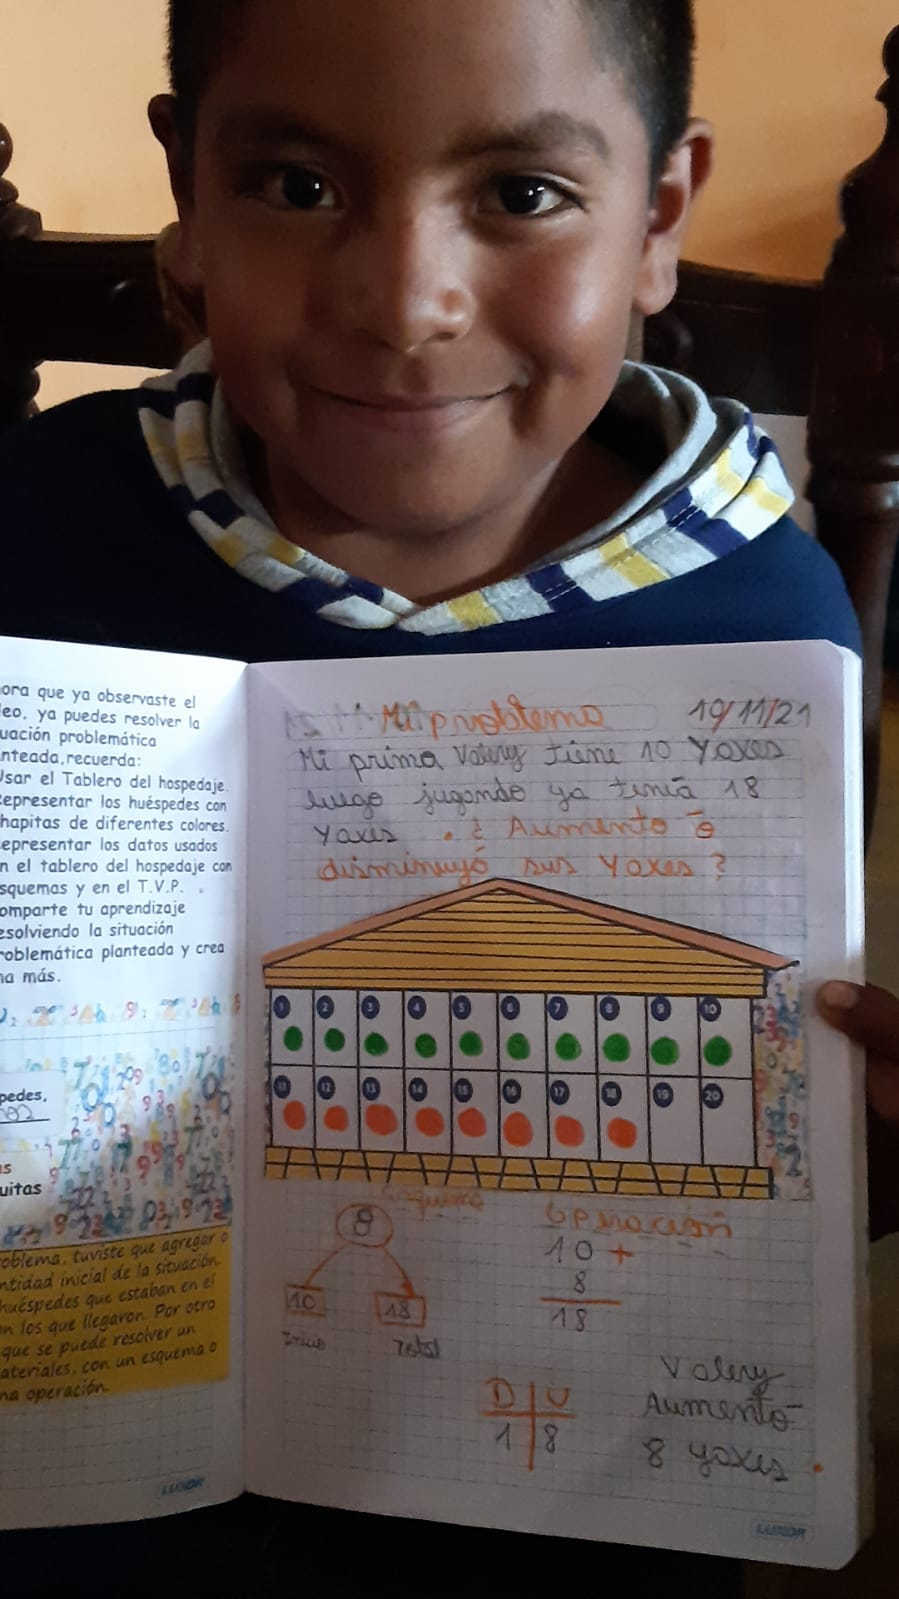 ora que ya observaste el
leo, ya puedes resolver la
uación problemática
nteada,recuerda:
Usar el Tablero del hospedaje.
Representar los huéspedes con
hapitas de diferentes colores.
epresentar los datos usados
n el tablero del hospedaje con
squemas y en el T.V.P.
omparte tu aprendizaje
esolviendo la situación
roblemática planteada y crea
na más.
pedes,
s
uitas
oblema, tuviste que agregar o
ntidad inicial de la situación.
huéspedes que estaban en el
n los que llegaron. Por otro
que se puede resolver un
ateriales, con un esquema o
na operación.
LUXOR
Mi problema 19/11/21
Mi prima Valery tiene 10 Yaxes
luego jugando ya tenía 18
Yaxes . ¿ Aumentó o
disminuyó sus Yaxes ?
1 2 3 4 5 6 7 8 9 10
11 12 13 14 15 16 17 18 19 20
Esquema
8
10 18
Inicio Total
Operación
10 +
8
18
D U
1 8
Valery
Aumentó
8 yaxes .
LUXOR